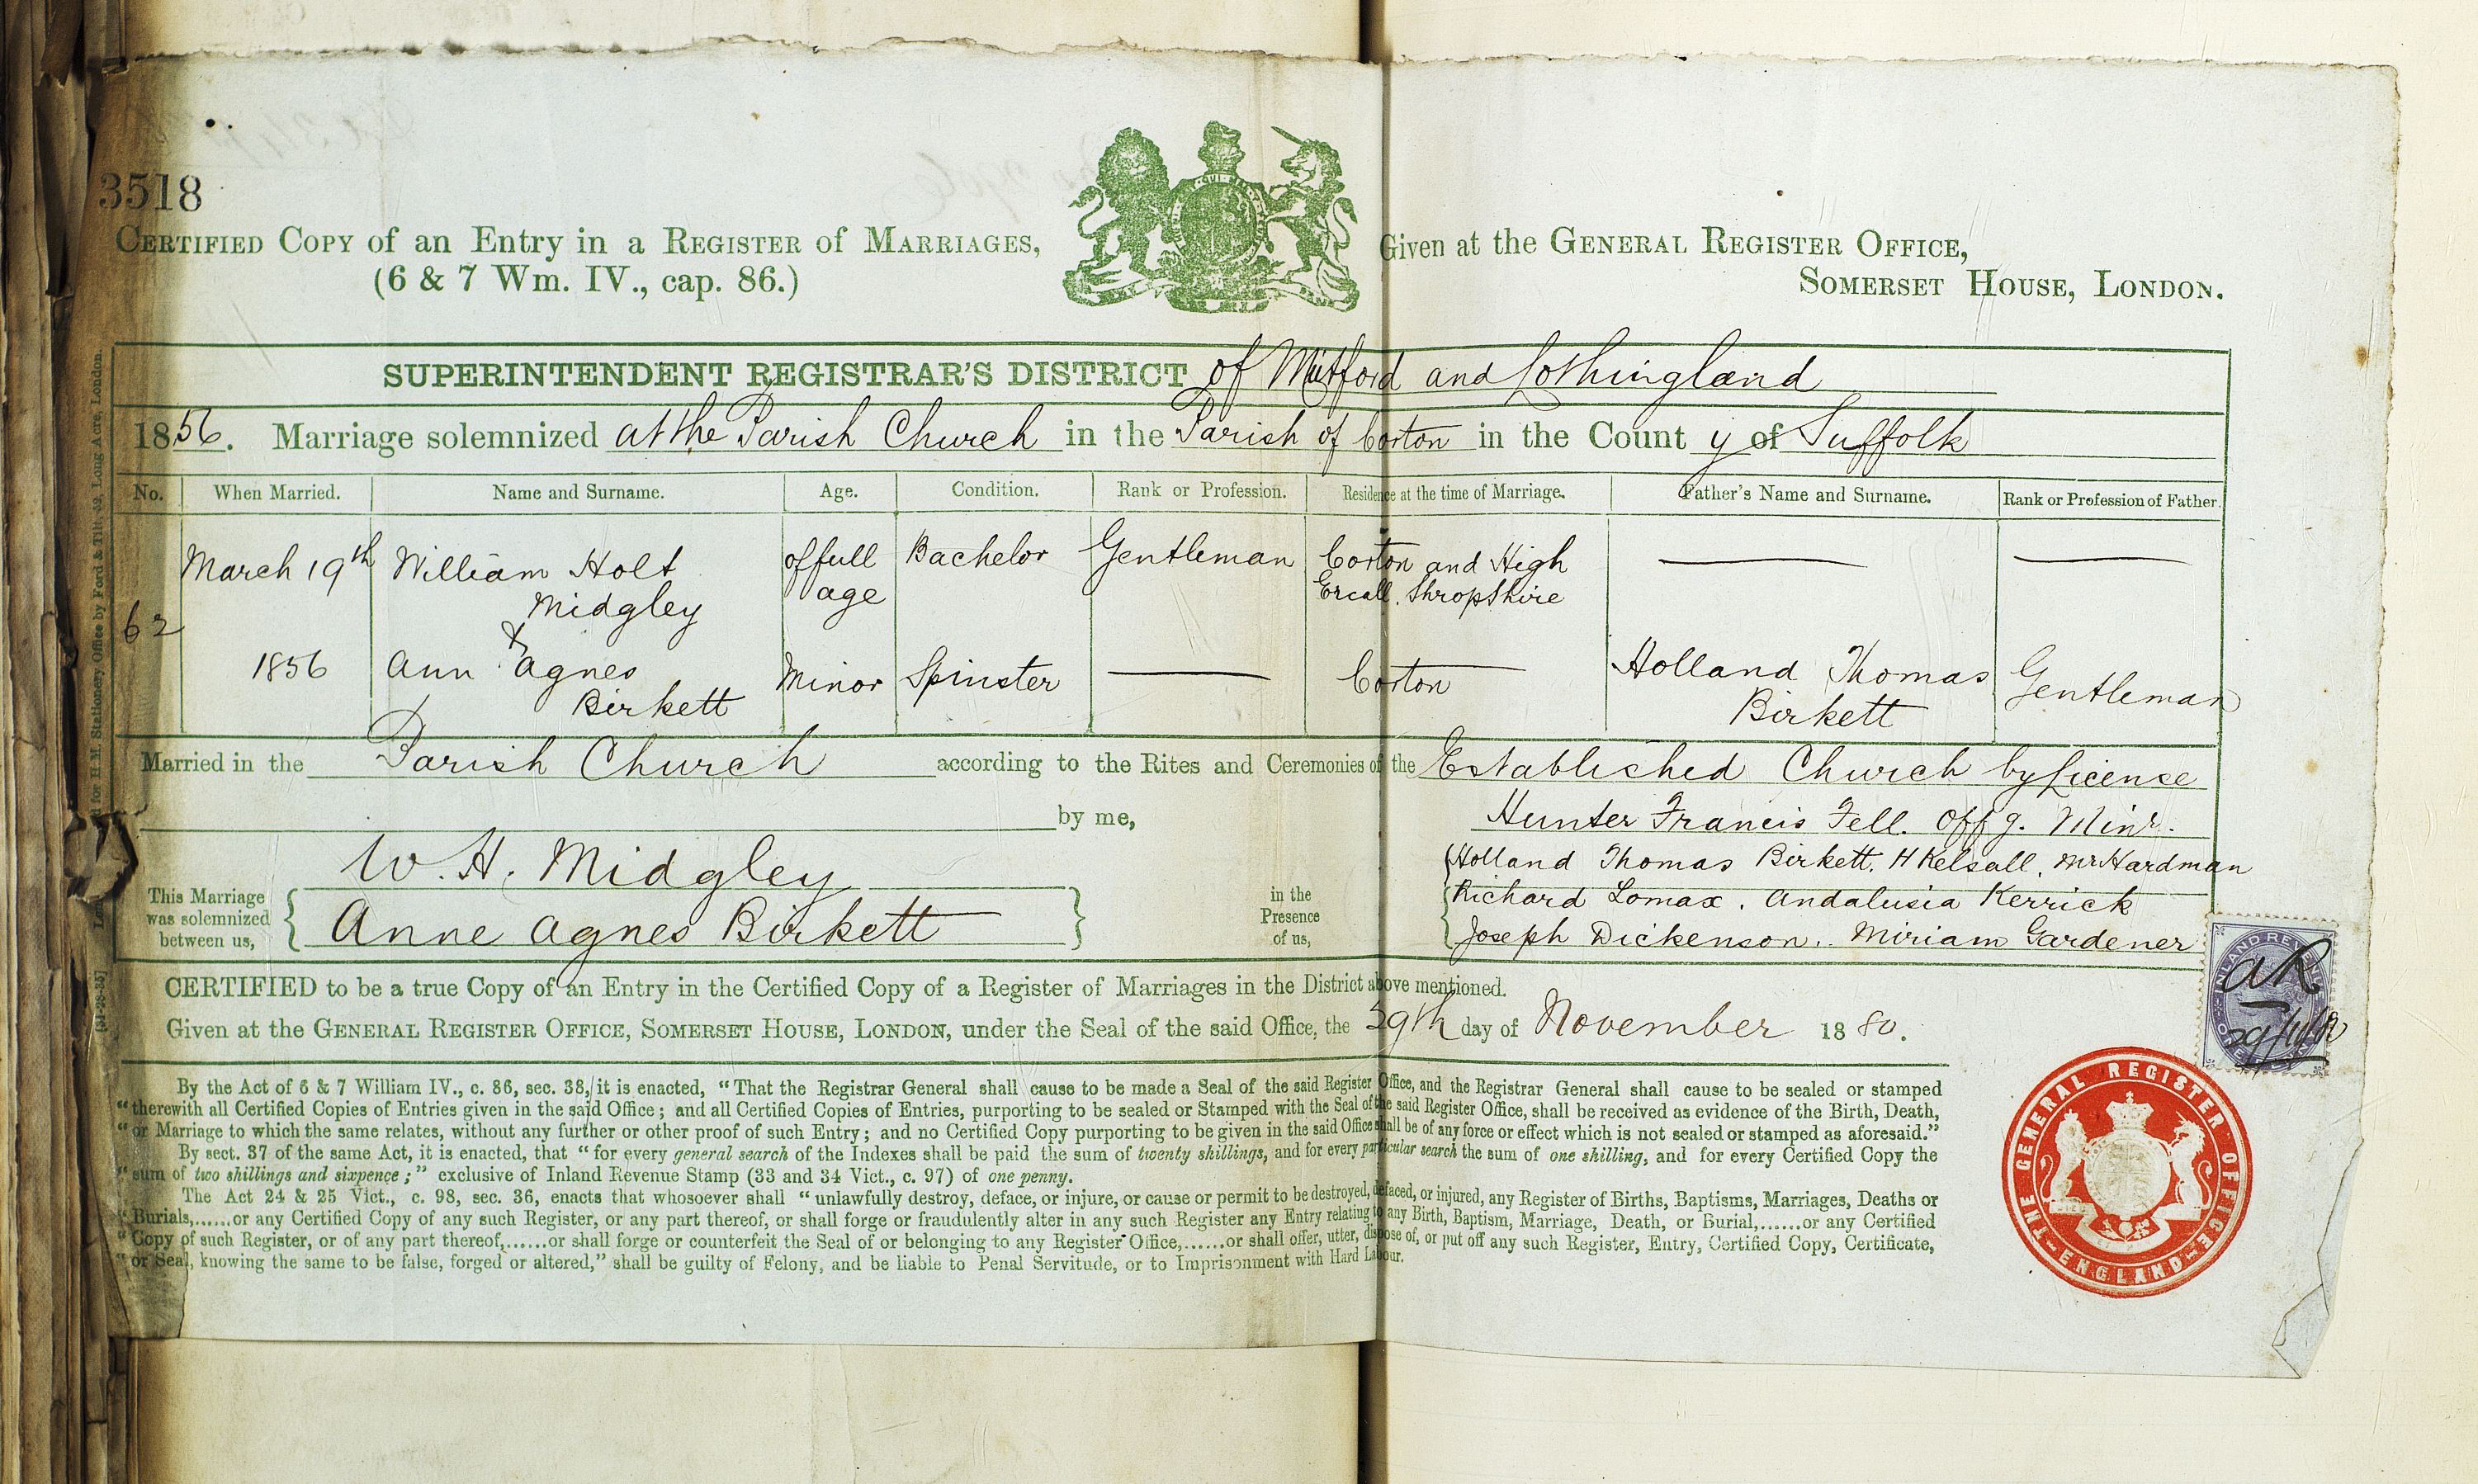 3518
CERTIFIED COPY of an Entry in a REGISTER of MARRIAGES,
(6 & 7 Wm. IV., cap. 86.)
Given at the GENERAL REGISTER OFFICE,
SOMERSET HOUSE, LONDON.
SUPERINTENDENT REGISTRAR'S DISTRICT of Mutford and Lothingland
1856. Marriage solemnized at the Parish Church in the Parish of Corton in the County of Suffolk
No. When Married. Name and Surname. Age. Condition. Rank or Profession. Residence at the time of Marriage. Father's Name and Surname. Rank or Profession of Father
March 19th William Holt of full Bachelor Gentleman Corton and High
Midgley age Ercall, Shropshire
62 &
1856 Ann Agnes Minor Spinster Corton Holland Thomas Gentleman
Birkett Birkett
Married in the Parish Church according to the Rites and Ceremonies of the Established Church by License
by me, Hunter Francis Fell. Offg. Minr.
This Marriage was solemnized between us,
W. H. Midgley
Anne Agnes Birkett
in the Presence of us,
Holland Thomas Birkett, H Kelsall, Mr Hardman
Richard Lomax, Andalusia Kerrick
Joseph Dickenson, Miriam Gardener
CERTIFIED to be a true Copy of an Entry in the Certified Copy of a Register of Marriages in the District above mentioned.
Given at the GENERAL REGISTER OFFICE, SOMERSET HOUSE, LONDON, under the Seal of the said Office, the 29th day of November 1880.
By the Act of 6 & 7 William IV., c. 86, sec. 38, it is enacted, "That the Registrar General shall cause to be made a Seal of the said Register Office, and the Registrar General shall cause to be sealed or stamped
"therewith all Certified Copies of Entries given in the said Office; and all Certified Copies of Entries, purporting to be sealed or Stamped with the Seal of the said Register Office, shall be received as evidence of the Birth, Death,
"or Marriage to which the same relates, without any further or other proof of such Entry; and no Certified Copy purporting to be given in the said Office shall be of any force or effect which is not sealed or stamped as aforesaid."
By sect. 37 of the same Act, it is enacted, that "for every general search of the Indexes shall be paid the sum of twenty shillings, and for every particular search the sum of one shilling, and for every Certified Copy the
"sum of two shillings and sixpence;" exclusive of Inland Revenue Stamp (33 and 34 Vict., c. 97) of one penny.
The Act 24 & 25 Vict., c. 98, sec. 36, enacts that whosoever shall "unlawfully destroy, deface, or injure, or cause or permit to be destroyed, defaced, or injured, any Register of Births, Baptisms, Marriages, Deaths or
"Burials,......or any Certified Copy of any such Register, or any part thereof, or shall forge or fraudulently alter in any such Register any Entry relating to any Birth, Baptism, Marriage, Death, or Burial,......or any Certified
"Copy of such Register, or of any part thereof,......or shall forge or counterfeit the Seal of or belonging to any Register Office,......or shall offer, utter, dispose of, or put off any such Register, Entry, Certified Copy, Certificate,
"or Seal, knowing the same to be false, forged or altered," shall be guilty of Felony, and be liable to Penal Servitude, or to Imprisonment with Hard Labour.
INLAND REVENUE
AR
THE GENERAL REGISTER OFFICE
ENGLAND
for H.M. Stationery Office by Ford & Tilt, 52, Long Acre, London.